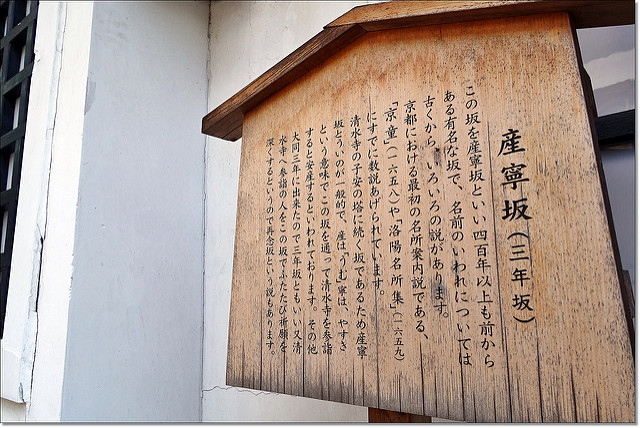 産寧坂(三年坂)
この坂を産寧坂といい四百年以上も前から
ある有名な坂で、名前のいわれについては
古くから、いろいろの説があります。
京都における最初の名所案内説である、
「京童」(一六五八)や「洛陽名所集」(一六五九)
にすでに数説あげられています。
清水寺の子安の塔に続く坂であるため産寧
坂とういのが一般的で、産は、うむ寧は、やすき
という意味でこの坂を通って清水寺を参詣
すると安産するといわれております。その他
大同三年に出来たので三年坂ともいい又清
水寺へ参詣の人をこの坂でふたたび祈願を
深くするというので再念坂という説もあります。